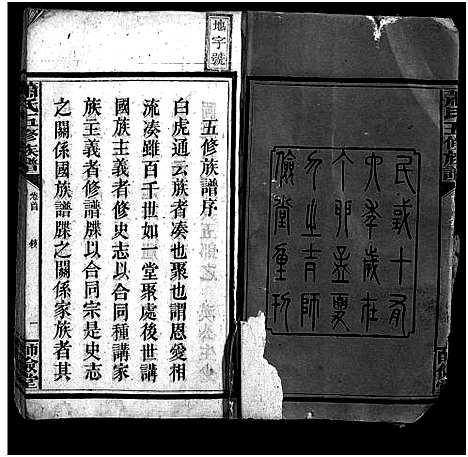 民或十有
六年歲在
丁卯孟夏
之吉師
儉堂重刊
地字號
五修族譜序
白虎通云族者湊也聚也謂恩愛相
流湊雖百千世如一堂聚處後世講
國族主義者修史志以合同種講家
族主義者修譜牒以合同宗是史志
之關係國族譜牒之關係家族者其
蕭氏五修族譜
卷首
一
師儉堂